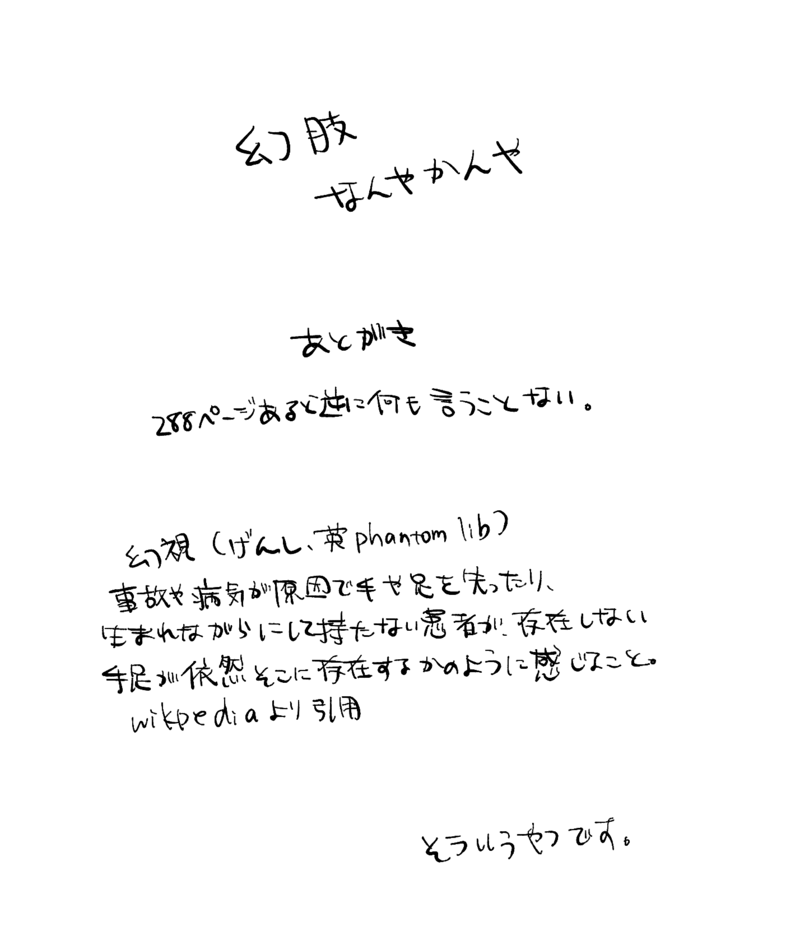 幻肢
なんやかんや
あとがき
288ページあると逆に何も言うことない。
幻視（げんし、英phantom lib）
事故や病気が原因で手や足を失ったり、
生まれながらにして持たない患者が、存在しない
手足が依然そこに存在するかのように感じること。
wikpediaより引用
そういうやつです。